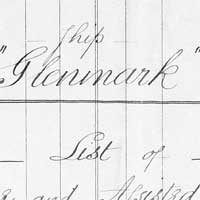 Ship
"Glenmark"
List of
and Assisted